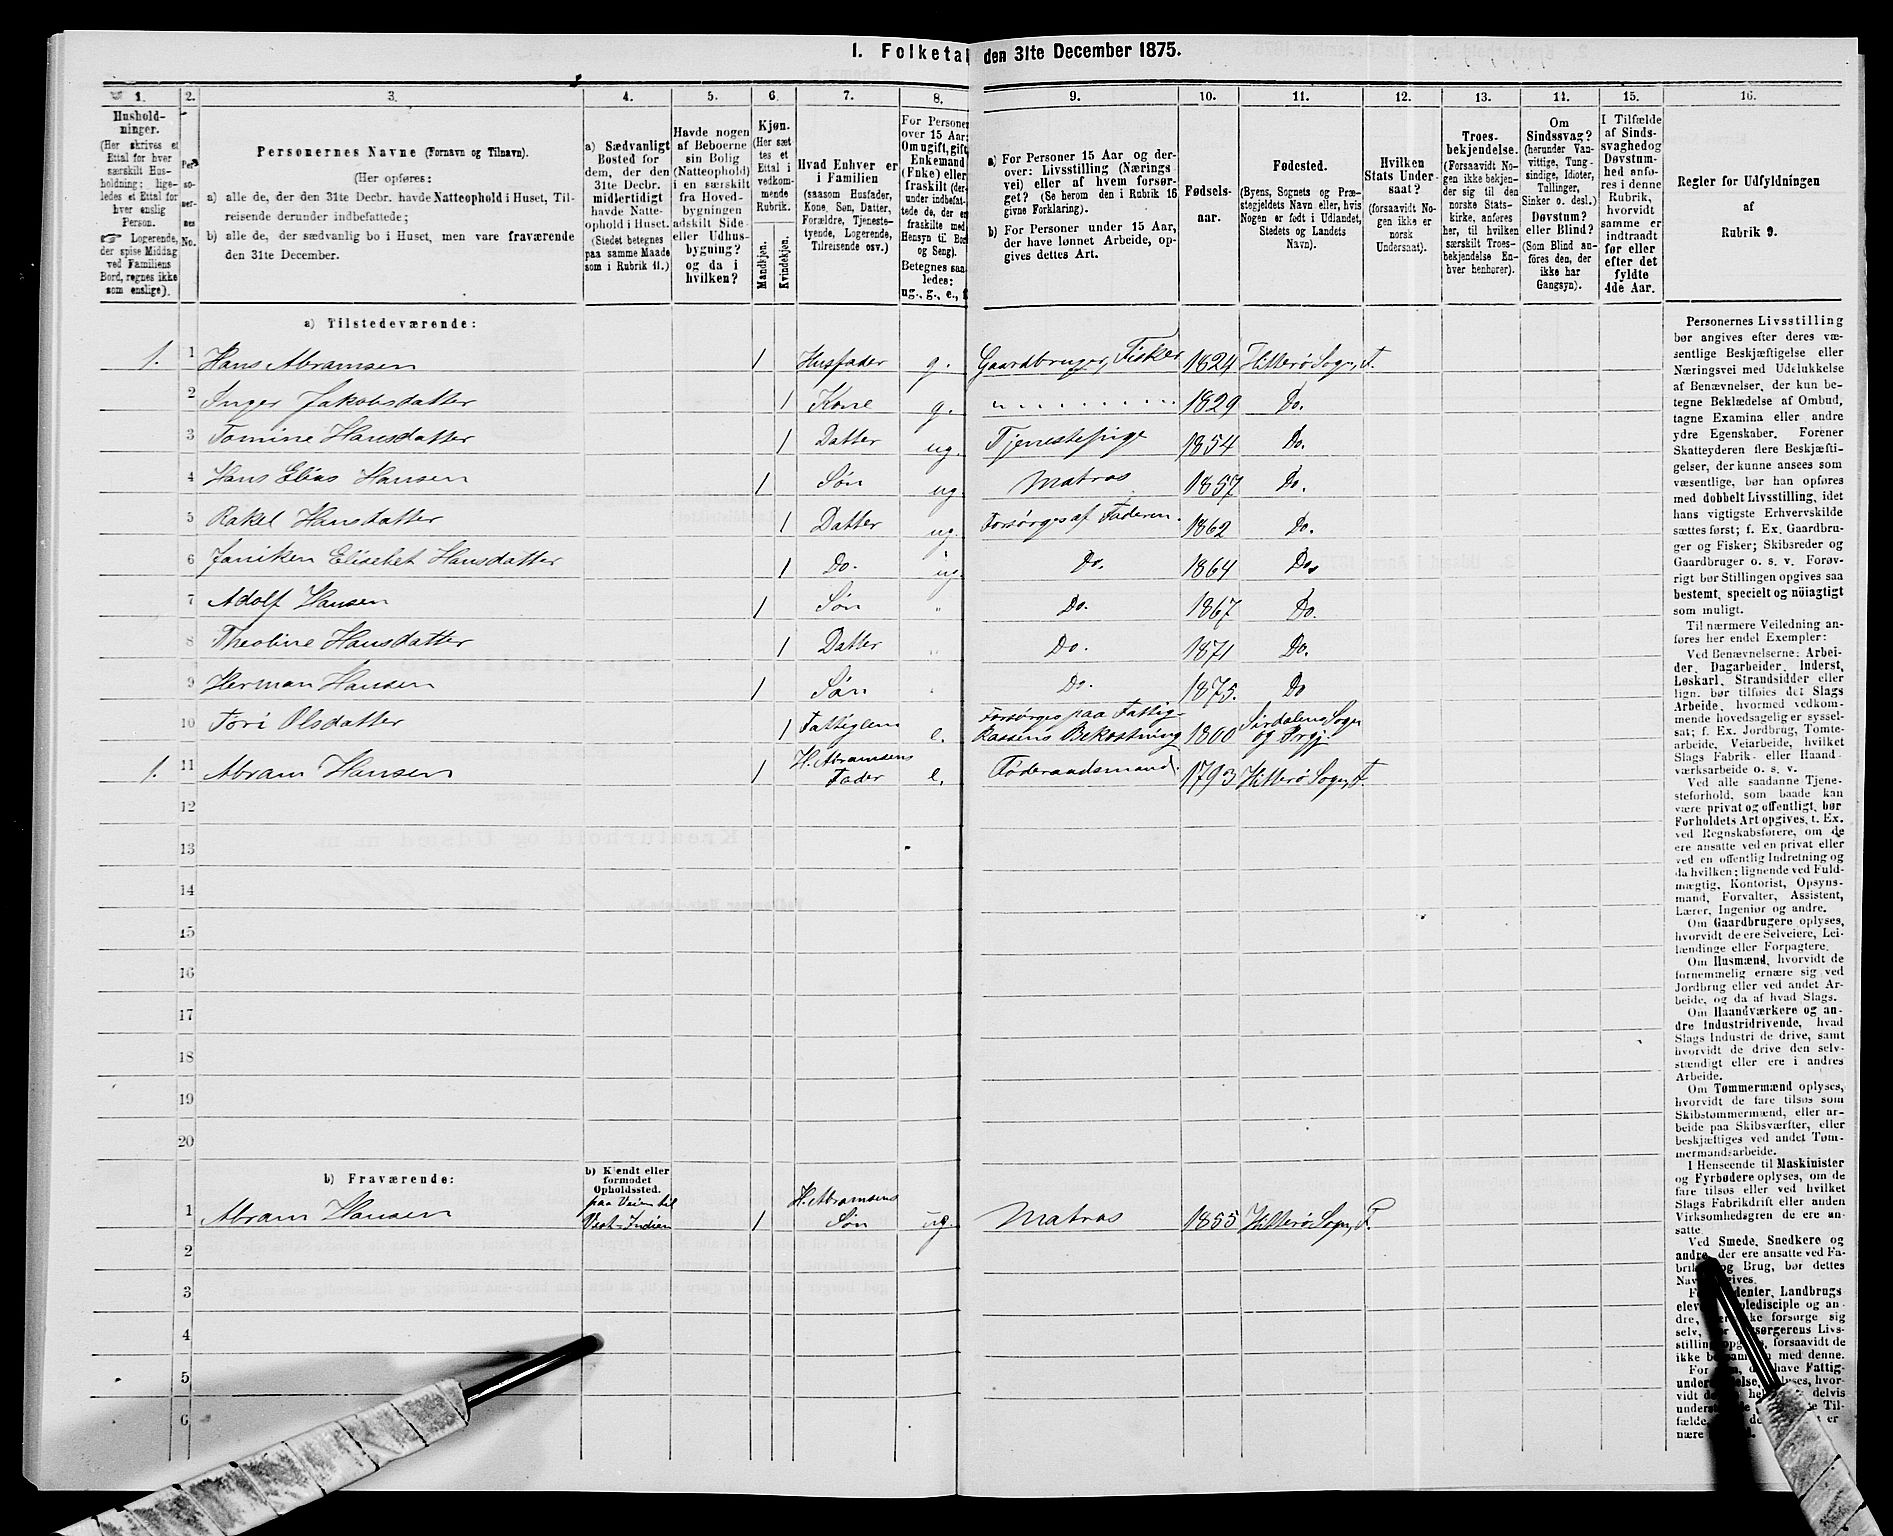 1. Folketal den 31te December 1875.
1. 2. 3. 4. 5. 6. 7. 8. 9. 10. 11. 12. 13. 14. 15. 16.
Hushold-
ninger.
(Her skrives et
Ettal for hver
særskilt Hus-
holdning; lige-
ledes et Ettal for
hver enslig
Person.
☞ Logerende,
der spise Middag
ved Familiens
Bord, regnes ikke
som enslige).
Per-
so-
ner-
nes
No.
Personernes Navne (Fornavn og Tilnavn).
(Her opføres:
a) alle de, der den 31te Decbr. havde Natteophold i Huset, Til-
reisende derunder indbefattede;
b) alle de, der sædvanlig bo i Huset, men vare fraværende
den 31te December.
a) Sædvanligt
Bosted for
dem, der den
31te Decbr.
midlertidigt
havde Natte-
ophold i Huset.
(Stedet betegnes
paa samme Maade
som i Rubrik 11.)
Havde nogen
af Beboerne
sin Bolig
(Natteophold)
i en særskilt
fra Hoved-
bygningen
adskilt Side-
eller Udhus-
bygning?
og da i
hvilken?
Kjøn.
(Her sæt-
tes et
Ettal i
vedkom-
mende
Rubrik.
Mandkjøn.
Kvindekjøn.
Hvad Enhver er
i Familien
(saasom Husfader,
Kone, Søn, Datter,
Forældre, Tjeneste-
tyende, Logerende,
Tilreisende osv.)
For Personer
over 15 Aar:
Om ugift, gift,
Enkemand
(Enke) eller
fraskilt (der-
under indbefat-
tede de, der er
fraskilte med
Hensyn til Bord
og Seng).
Betegnes saa-
ledes:
ug., g., e., f.
a) For Personer 15 Aar og der-
over: Livsstilling (Nærings-
vei) eller af hvem forsør-
get? (Se herom den i Rubrik 16
givne Forklaring).
b) For Personer under 15 Aar,
der have lønnet Arbeide, op-
gives dettes Art.
Fødsels-
aar.
Fødested.
(Byens, Sognets og Præ-
stegjeldets Navn eller, hvis
Nogen er født i Udlandet,
Stedets og Landets
Navn).
Hvilken
Stats Under-
saat?
(forsaavidt No-
gen ikke er
norsk
Undersaat).
Troes-
bekjendelse.
(Forsaavidt No-
gen ikke bekjen-
der sig til den
norske Stats-
kirke, anføres
her, til hvilken
særskilt Troes-
bekjendelse En-
hver henhører).
Om
Sindssvag?
(herunder Van-
vittige, Tung-
sindige, Idioter,
Tullinger,
Sinker o. desl.)
Døvstum?
eller Blind?
(Som Blind an-
føres den, der
ikke har
Gangsyn).
I Tilfælde
af Sinds-
svaghed og
Døvstum-
hed anfø-
res i denne
Rubrik,
hvorvidt
samme er
indtraadt
før eller
efter det
fyldte
4de Aar.
Regler for Udfyldningen
af
Rubrik 9.
a) Tilstedeværende:
1. 1 Hans Abramsen 1 Husfader g. Gaardbruger, Fisker 1824 Hitterø Sogn, F.
2 Inger Jakobsdatter 1 Kone g. " 1829 Do.
3 Tomine Hansdatter 1 Datter ug. Tjenestepige 1854 Do.
4 Hans Elias Hansen 1 Søn ug. Matros 1857 Do.
5 Rakel Hansdatter 1 Datter ug. Forsørges af Faderen. 1862 Do.
6 Janiken Elisebet Hansdatter 1 Do. ug. Do. 1864 Do.
7 Adolf Hansen 1 Søn " Do. 1867 Do.
8 Theoline Hansdatter 1 Datter " Do. 1871 Do.
9 Herman Hansen 1 Søn " Do. 1875. Do
10 Tori Olsdatter 1 Fattiglem e. Forsørges paa Fattig-
kassens Bekostning 1800 Sirdalens Sogn
og Prgj.
1. 11 Abram Hansen 1 H. Abramsens
Fader e. Føderaadsmand. 1793 Hitterø Sogn, F.
12
13
14
15
16
17
18
19
20
b) Fraværende:
b) Kjendt eller
formodet
Opholdssted.
1 Abram Hansen paa Veien til
Vest-Indien 1 H. Abramsens
Søn ug. Matros 1855 Hitterø Sogn, F.
2
3
4
5
6
Personernes Livsstilling
bør angives efter deres væ-
sentlige Beskjæftigelse eller
Næringsvei med Udelukkelse
af Benævnelser, der kun be-
tegne Beklædelse af Ombud,
tagne Examina eller andre
ydre Egenskaber. Forener
Skatteyderen flere Beskjæfti-
gelser, der kunne ansees som
væsentlige, bør han opføres
med dobbelt Livsstilling, idet
hans vigtigste Erhvervskilde
sættes først; f. Ex. Gaardbru-
ger og Fisker; Skibsreder og
Gaardbruger o. s. v. Forøv-
rigt bør Stillingen opgives saa
bestemt, specielt og nöiagtigt
som muligt.
Til nærmere Veiledning an-
føres her endel Exempler:
Ved Benævnelserne: Arbei-
der, Dagarbeider, Inderst,
Løskarl, Strandsidder eller
lign. bør tilføies det Slags
Arbeide, hvormed vedkom-
mende hovedsagelig er syssel-
sat; f. Ex. Jordbrug, Tomte-
arbeide, Veiarbeide, hvilket
Slags Fabrik- eller Haand-
værksarbeide o. s. v.
Ved alle saadanne Tjene-
steforhold, som baade kan
være privat og offentligt, bør
Forholdets Art opgives, t. Ex.
ved Regnskabsførere, om de
ere ansatte ved en privat eller
ved en offentlig Indretning og
da hvilken; lignende ved Fuld-
mægtig, Kontorist, Opsyns-
mand, Forvalter, Assistent,
Lærer, Ingeniør og andre.
Om Gaardbrugere oplyses,
hvorvidt de ere Selveiere, Lei-
lændinge eller Forpagtere.
Om Husmænd, hvorvidt de
fornemmelig ernære sig ved
Jordbrug eller ved andet Ar-
beide, og da af hvad Slags.
Om Haandværkere og an-
dre Industridrivende, hvad
Slags Industri de drive, samt
hvorvidt de drive den selv-
stændigt eller ere i andres
Arbeide.
Om Tømmermænd oplyses,
hvorvidt de fare tilsøs som
Skibstømmermænd, eller ar-
beide paa Skibsværfter, eller
beskjæftiges ved andet Tøm-
mermandsarbeide.
I Henseende til Maskinister
og Fyrbødere oplyses, om de
fare tilsøs eller ved hvilket
Slags Fabrikdrift eller anden
Virksomhedsgren de ere an-
satte.
Ved Smede, Snedkere og
andre, der ere ansatte ved Fa-
brik og Brug, bør dettes
Navn gives.